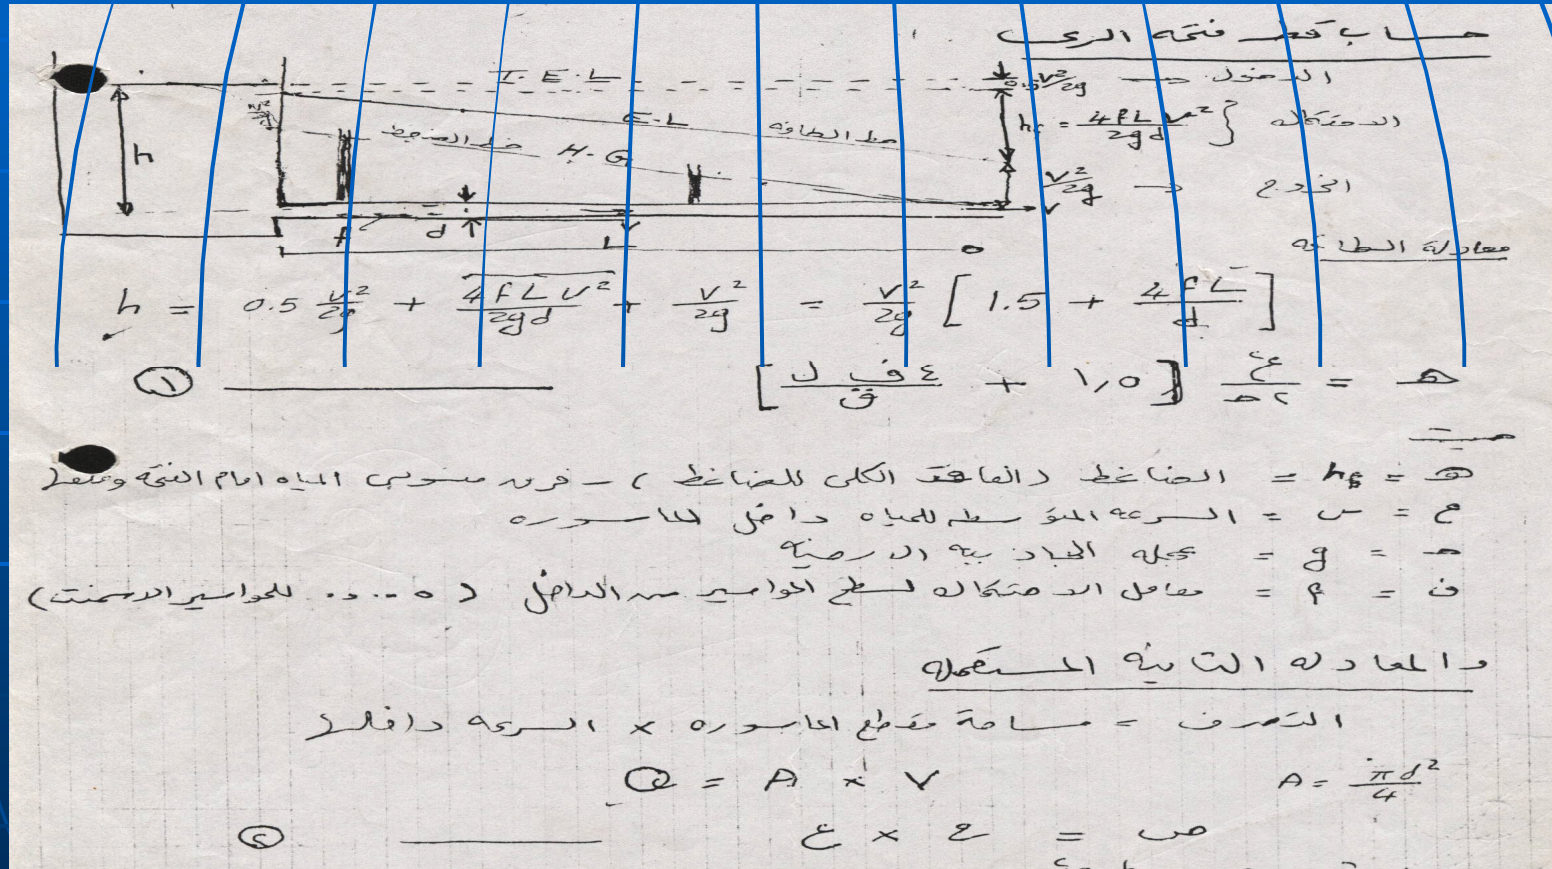 حساب قطر فتحة الرى
I.E.L
الدخول → 0.5 v²/2g
E.L
خط الطاقه
الاحتكاك } hf = 4fLv²/2gd
خط الضغط H.G
h
الخروج → v²/2g
v
f d L
معادلة الطاقه
h = 0.5 v²/2g + 4fLv²/2gd + v²/2g = v²/2g [1.5 + 4fL/d]
هـ = ع²/٢حـ [١,٥ + ٤ ف ل/ق] ــــــ ①
حيث
هـ = hf = الضاغط (الفاقد الكلى للضاغط) - فرق منسوبى المياه امام الفتحة وخلفها
ع = س = السرعه المتوسطه للمياه داخل الماسوره
حـ = g = عجله الجاذبيه الارضيه
ف = f = معامل الاحتكاك لسطح المواسير من الداخل (٠.٠٠٥ للمواسير الاسمنت)
والمعادله الثانيه المستعمله
التصرف = مساحة مقطع الماسوره × السرعه داخلها
Q = A × V
A = πd²/4
ص = ع × ع ــــــ ②